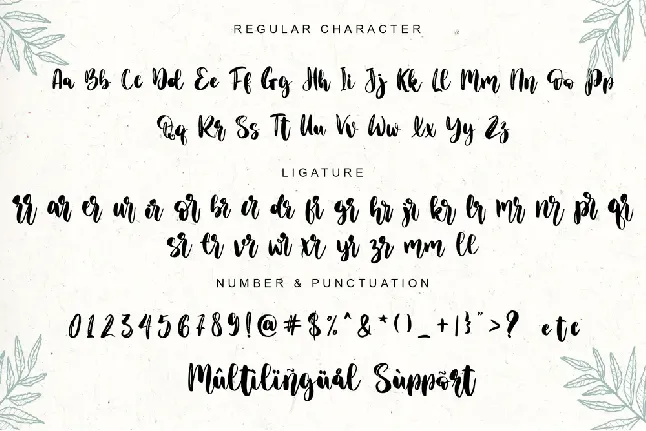 REGULAR CHARACTER
Aa Bb Cc Dd Ee Ff Gg Hh Ii Jj Kk Ll Mm Nn Oo Pp
Qq Rr Ss Tt Uu Vv Ww Xx Yy Zz
LIGATURE
rr ar er ur ir or br cr dr fr gr hr jr kr lr mr nr pr qr
sr tr vr wr xr yr zr mm ll
NUMBER & PUNCTUATION
0123456789!@#$%^&*()_+|}">? etc
Múltîlïñgüål Sùppõrt